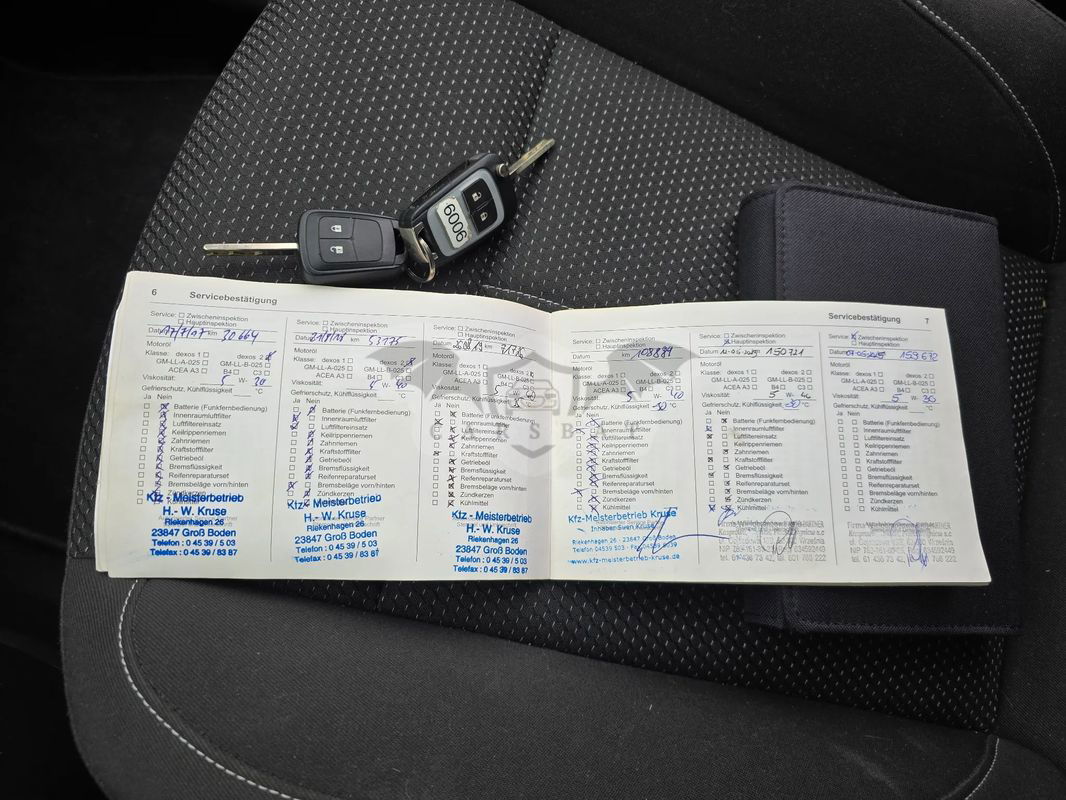 6006
6 Servicebestätigung
Service: Zwischeninspektion
Hauptinspektion
Datum 17/7/17 km 30.664
Motoröl
Klasse: dexos 1 dexos 2
GM-LL-A-025 GM-LL-B-025
ACEA A3 B4 C3
Viskosität: 5 W- 30
Gefrierschutz, Kühlflüssigkeit °C
Ja Nein
Batterie (Funkfernbedienung)
Innenraumluftfilter
Luftfiltereinsatz
Keilrippenriemen
Zahnriemen
Kraftstofffilter
Getriebeöl
Bremsflüssigkeit
Reifenreparaturset
Bremsbeläge vorn/hinten
Zündkerzen
Kfz - Meisterbetrieb
H.- W. Kruse
Riekenhagen 26
23847 Groß Boden
Telefon : 0 45 39 / 5 03
Telefax : 0 45 39 / 83 87
Service: Zwischeninspektion
Hauptinspektion
km 53175
Motoröl
Klasse: dexos 1 dexos 2
GM-LL-A-025 GM-LL-B-025
ACEA A3 B4 C3
Viskosität: 5 W- 40
Gefrierschutz, Kühlflüssigkeit °C
Ja Nein
Batterie (Funkfernbedienung)
Innenraumluftfilter
Luftfiltereinsatz
Keilrippenriemen
Zahnriemen
Kraftstofffilter
Getriebeöl
Bremsflüssigkeit
Reifenreparaturset
Bremsbeläge vorn/hinten
Zündkerzen
Kfz - Meisterbetrieb
H.- W. Kruse
Riekenhagen 26
23847 Groß Boden
Telefon : 0 45 39 / 5 03
Telefax : 0 45 39 / 83 87
Service: Zwischeninspektion
Hauptinspektion
Motoröl
Klasse: dexos 1 dexos 2
ACEA A3
Viskosität: 5
Gefrierschutz, Kühlflüssigkeit
Ja Nein
Batterie (Funkfernbedienung)
Innenraumluftfilter
Luftfiltereinsatz
Keilrippenriemen
Zahnriemen
Kraftstofffilter
Getriebeöl
Bremsflüssigkeit
Reifenreparaturset
Bremsbeläge vorn/hinten
Zündkerzen
Kühlmittel
Kfz - Meisterbetrieb
H.- W. Kruse
Riekenhagen 26
23847 Groß Boden
Telefon : 0 45 39 / 5 03
Telefax : 0 45 39 / 83 87
Servicebestätigung 7
Service: Zwischeninspektion
Hauptinspektion
Datum km 108.881
Motoröl
Klasse: dexos 1 dexos 2
GM-LL-A-025 GM-LL-B-025
ACEA A3 B4 C3
Viskosität: 5 W- 40
Gefrierschutz, Kühlflüssigkeit -30 °C
Ja Nein
Batterie (Funkfernbedienung)
Innenraumluftfilter
Luftfiltereinsatz
Keilrippenriemen
Zahnriemen
Kraftstofffilter
Getriebeöl
Bremsflüssigkeit
Reifenreparaturset
Bremsbeläge vorn/hinten
Zündkerzen
Kühlmittel
Kfz-Meisterbetrieb Kruse
Inhaber Sven Kruse
Riekenhagen 26 - 23847 Groß Boden
Telefon 04539 503
www.kfz-meisterbetrieb-kruse.de
Service: Zwischeninspektion
Hauptinspektion
Datum km 150721
Motoröl
Klasse: dexos 1 dexos 2
GM-LL-A-025 GM-LL-B-025
ACEA A3 B4 C3
Viskosität: 5 W-
Gefrierschutz, Kühlflüssigkeit -30 °C
Ja Nein
Batterie (Funkfernbedienung)
Innenraumluftfilter
Luftfiltereinsatz
Keilrippenriemen
Zahnriemen
Kraftstofffilter
Getriebeöl
Bremsflüssigkeit
Reifenreparaturset
Bremsbeläge vorn/hinten
Zündkerzen
Kühlmittel
Service: Zwischeninspektion
Hauptinspektion
Datum 159 632
Motoröl
Klasse: dexos 1 dexos 2
GM-LL-A-025 GM-LL-B-025
ACEA A3 B4 C3
Viskosität: 5 W- 30
Gefrierschutz, Kühlflüssigkeit °C
Ja Nein
Batterie (Funkfernbedienung)
Innenraumluftfilter
Luftfiltereinsatz
Keilrippenriemen
Zahnriemen
Kraftstofffilter
Getriebeöl
Bremsflüssigkeit
Reifenreparaturset
Bremsbeläge vorn/hinten
Zündkerzen
Kühlmittel